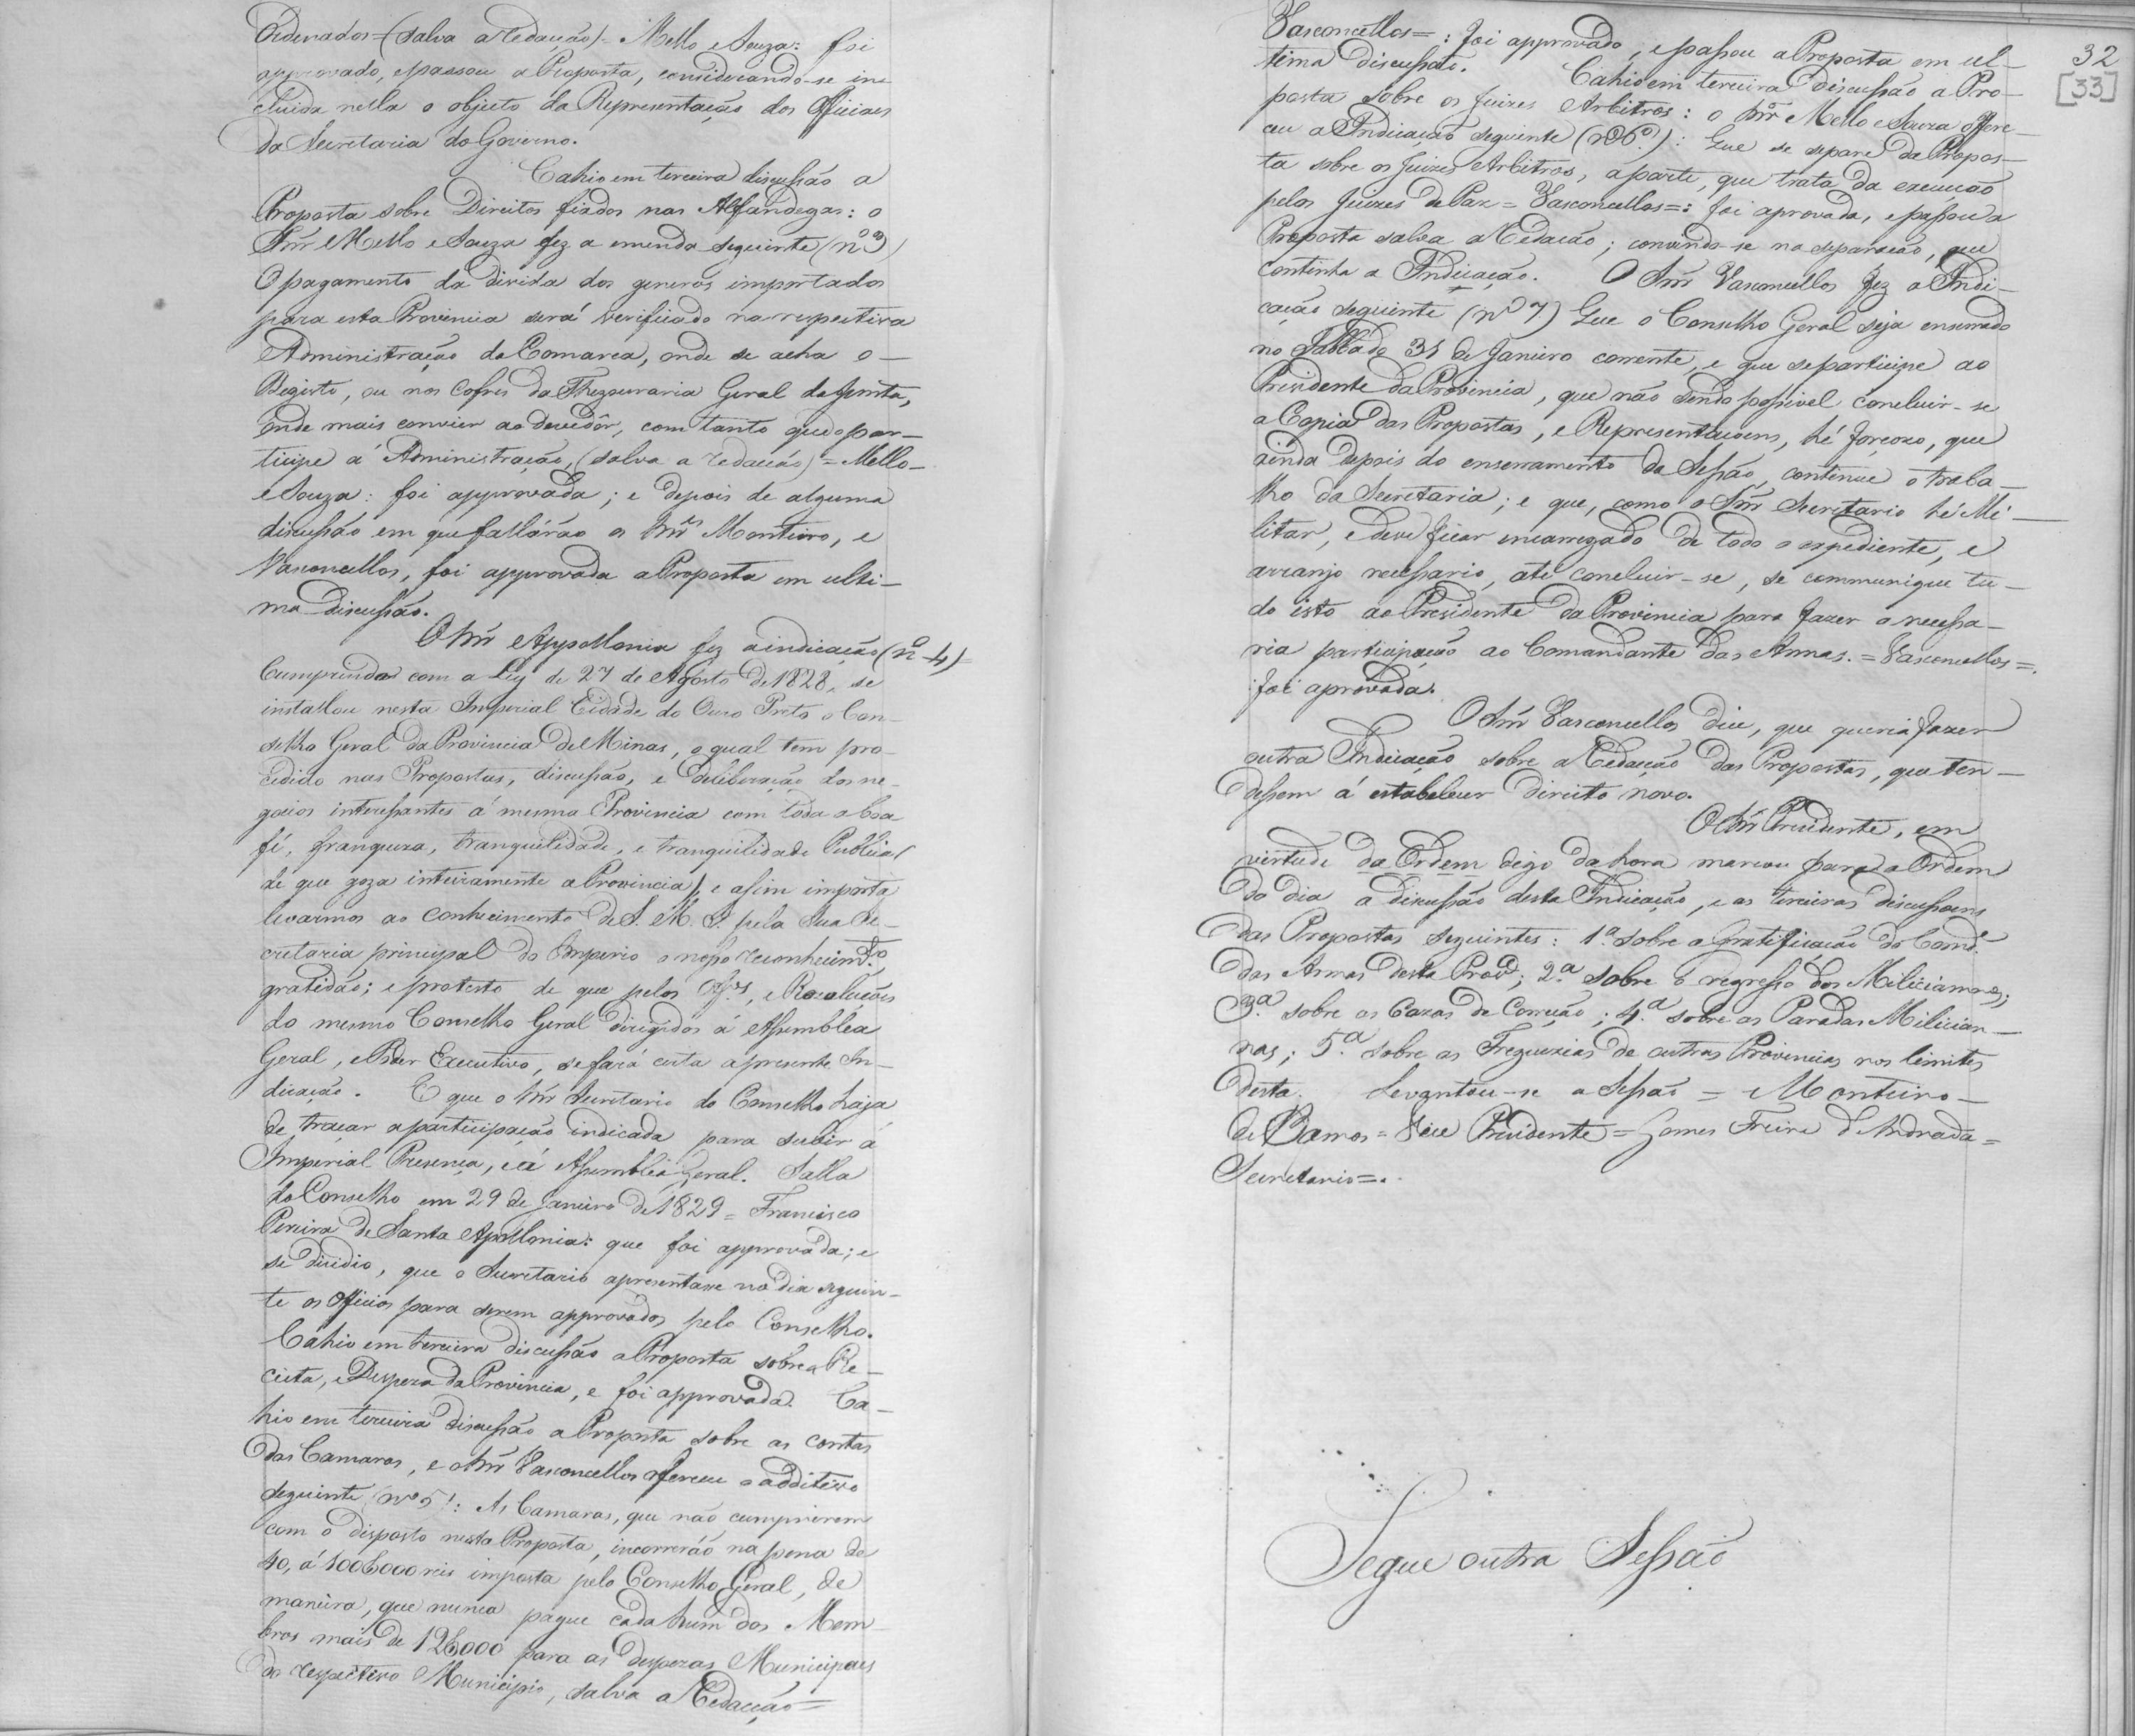 Ordenados = (salva a redacção) = Mello e Souza: foi
approvado, e passou a Proposta, considerando-se in
cluida nella o objecto da Representação dos Officiaes
da Secretaria do Governo.
Cahio em terceira discussão a
Proposta sobre Direitos fiados nas Alfandegas: o
Snr̃ Mello e Souza fez a emenda seguinte (nº 3)
O pagamento da divida dos generos importados
para esta Provincia será verificado na respectiva
Administração da Comarca, onde se acha o
Registo, ou nos Cofres da Thezouraria Geral da Junta,
onde mais convier ao devedôr, com tanto que o par-
ticipe á Administração, (salva a redacção) = Mello
e Souza: foi approvada; e depois de alguma
discussão em que fallárão os Snr̃es Monteiro, e
Vasconcellos, foi approvada a Proposta em ulti-
ma discussão.
O Snr̃ Appollonia fez a indicação (nº 4) =
Cumprindo com a Ley de 27 de Agosto de 1828, se
installou nesta Imperial Cidade do Ouro Preto o Con-
selho Geral da Provincia de Minas, o qual tem pro-
cedido nas Propostas, discussão, e deliberação dos ne-
gocios interessantes á mesma Provincia com toda a boa
fé, franqueza, tranquilidade, e tranquilidade Publica (
de que goza inteiramente a Provincia), e assim importa
levarmos ao conhecimento de S. M. I. pela Sua Se-
cretaria principal do Imperio o nosso reconhecim.to,
gratidão; e protesto de que pelos Off.os, e Resoluções
do mesmo Conselho Geral dirigidos á Assemblea
Geral, e Poder Executivo, se fará certa a presente In-
dicação. E que o Snr̃ Secretario do Conselho haja
de traçar a participação indicada para subir á
Imperial Presença, e á Assemblea Geral. Salla
do Conselho em 29 de Janeiro de 1829 = Francisco
Pereira de Santa Apollonia: que foi approvada; e
se dicidio, que o Secretario apresentasse no dia seguin-
te os Officios para serem approvados pelo Conselho.
Cahio em terceira discussão a Proposta sobre a Re-
ceita, e Despeza da Provincia, e foi approvada. Ca-
hio em terceira discussão a Proposta sobre as contas
das Camaras, e o Snr̃ Vasconcellos offereceu o additivo
seguinte (nº 5): As Camaras, que não cumprirem
com o disposto nesta Proposta, incorrerão na pena de
40, á 100$000 reis imposta pelo Conselho Geral, de
maneira, que nunca pague cada hum dos Mem-
bros mais de 12$000 para as despezas Municipaes
do respectivo Municipio, salva a Redacção =
32
[33]
Vasconcellos =: foi approvado, e passou a Proposta em ul-
tima discussão. Cahio em terceira discussão a Pro-
posta sobre os Juizes Arbitros: o Snr̃ Mello e Souza offere-
ceu a Indicação seguinte (nº 6º): Que se separe da Propos-
ta sobre os Juizes Arbitros, a parte, que trata da execução
pelos Juizes de Paz = Vasconcellos =: foi aprovada, e passou a
Proposta salva a Redacão; convindo-se na separação, que
continha a Indicação. O Snr̃ Vasconcellos fez a Indi-
cação seguinte (nº 7) Que o Conselho Geral seja encerrado
no Sabbado 31 de Janeiro corrente, e que se participe ao
Presidente da Provincia, que não sendo possivel concluir-se
a Copia das Propostas, e Representaçoens, hé forçozo, que
ainda depois do encerramento da Sessão, continue o traba-
lho da Secretaria; e que, como o Snr̃ Secretario hé Mi-
litar, e deve ficar encarregado de todo o expediente, e
arranjo necessario, até concluir-se, se communique tu-
do isto ao Presidente da Provincia para fazer a necessa-
ria participação ao Comandante das Armas. = Vasconcellos =
foi aprovada.
O Snr̃ Vasconcellos dice, que queria fazer
outra Indicação sobre a Redacção das Propostas, que ten-
dessem á estabelecer direito novo.
O Snr̃ Presidente, em
virtude da Ordem digo da hora marcou para a Ordem
do dia a discussão desta Indicação, e as terceiras discussoens
das Propostas seguintes: 1ª sobre a Gratificação do Comd.e
das Armas desta Prov.a; 2.ª sobre o regresso dos Milicianos;
3.ª sobre as Cazas de Correcão; 4.ª sobre as Paradas Milician-
nas; 5.ª sobre as Freguezias de outras Provincias nos limites
desta. Levantou-se a Sessão = Monteiro
de Barros = Vice Presidente = Gomes Freire d'Andrada =
Secretario =.
Segue outra Sessão